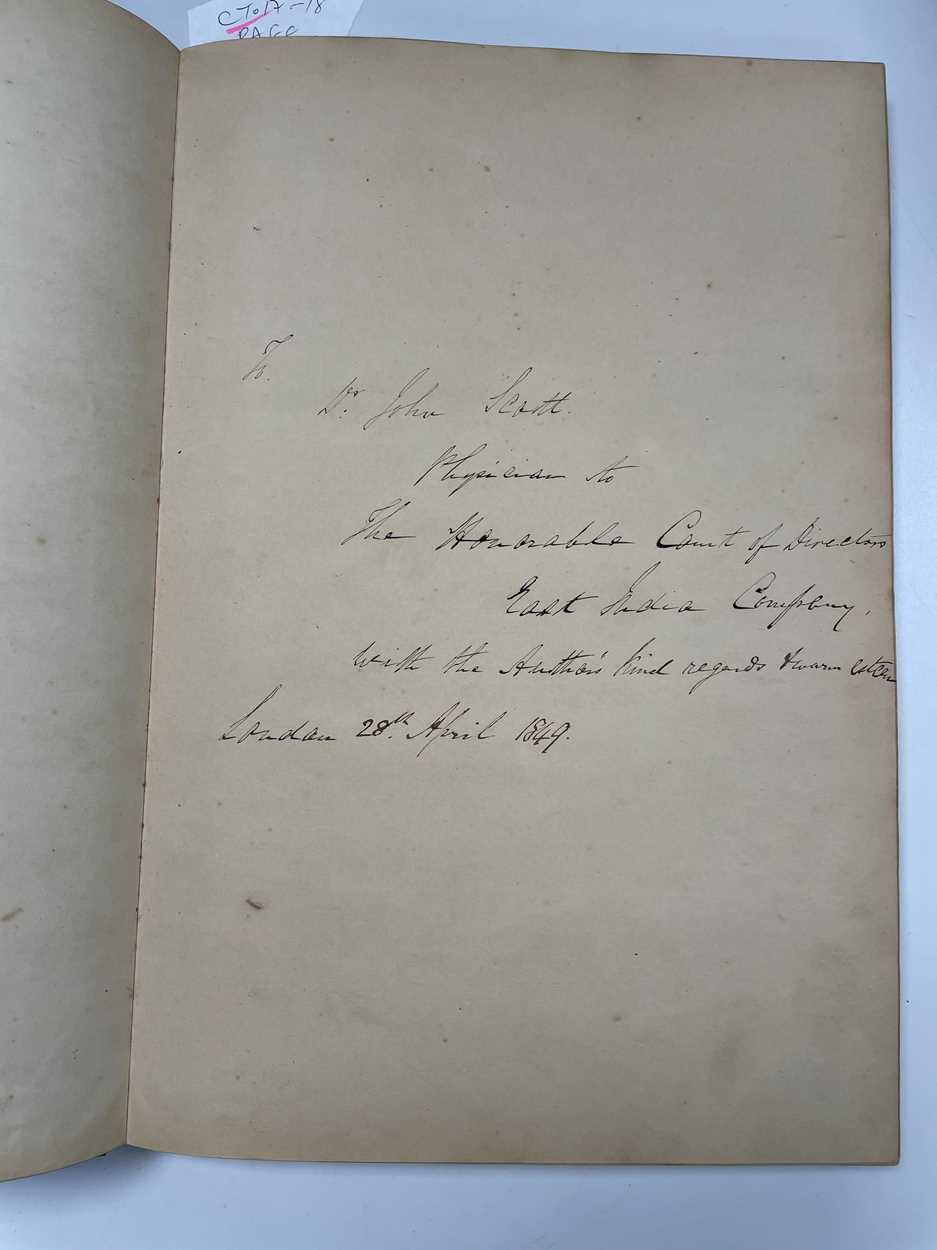 CTO 17-18
PAGE
To.
Dr. John Scott.
Physician to
The Honorable Court of Directors
East India Company,
With the Author's kind regards & warm esteem
London 28th. April 1849.